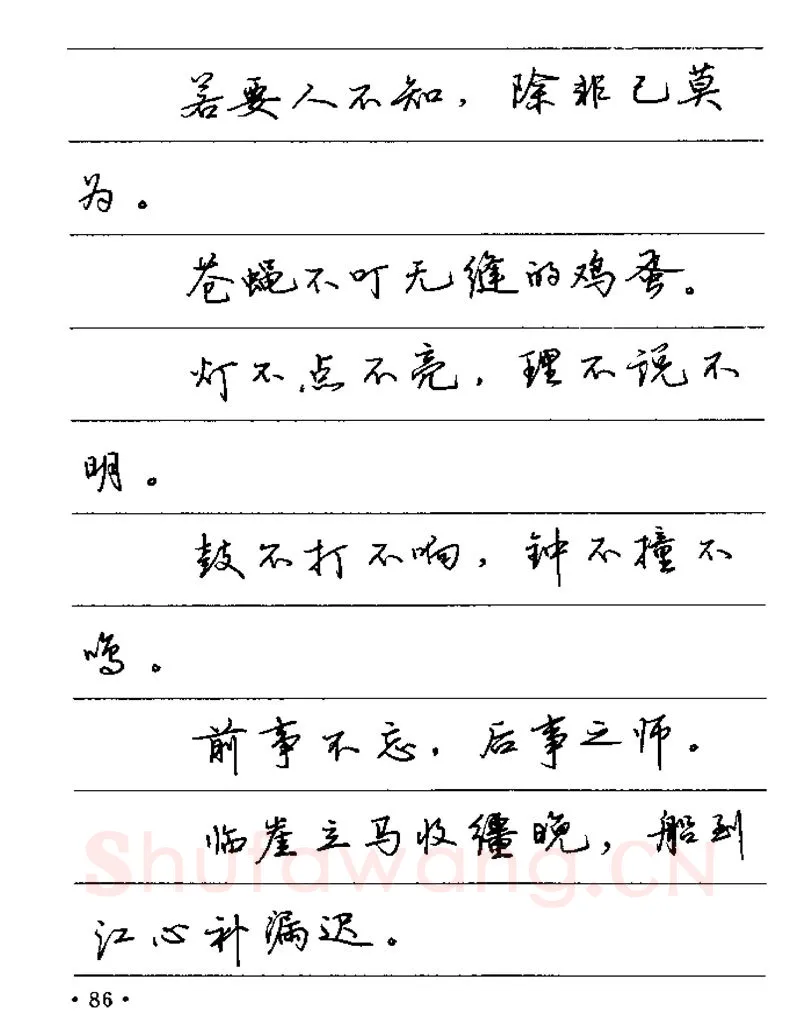 若要人不知，除非己莫
为。
苍蝇不叮无缝的鸡蛋。
灯不点不亮，理不说不
明。
鼓不打不响，钟不撞不
鸣。
前事不忘，后事之师。
临崖立马收缰晚，船到
江心补漏迟。
Shufawang.CN
·86·